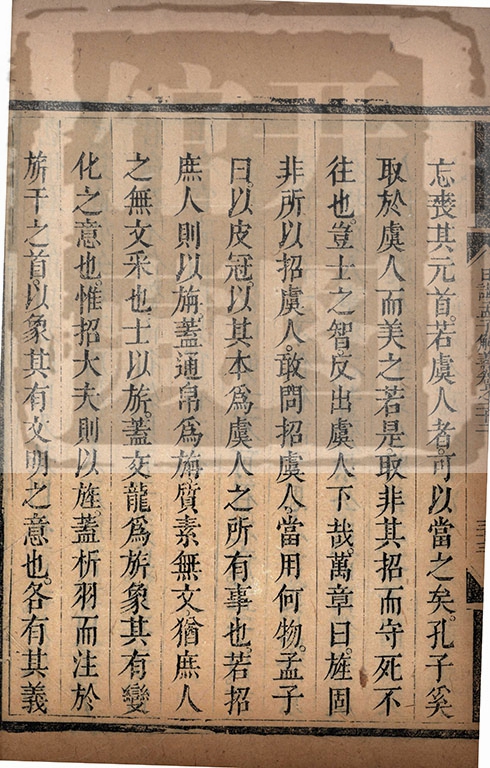 忘喪其元首。若虞人者。可以當之矣。孔子奚
取於虞人而美之若是。取非其招而守死不
往也。豈士之智。反出虞人下哉。萬章曰。旌固
非所以招虞人。敢問招虞人。當用何物。孟子
曰。以皮冠。以其本爲虞人之所有事也。若招
庶人則以旃。蓋通帛爲旃。質素無文。猶庶人
之無文采也。士以旂。蓋交龍爲旂。象其有變
化之意也。惟招大夫則以旌。蓋析羽而注於
旂干之首。以象其有文明之意也。各有其義
日講孟子解義卷之